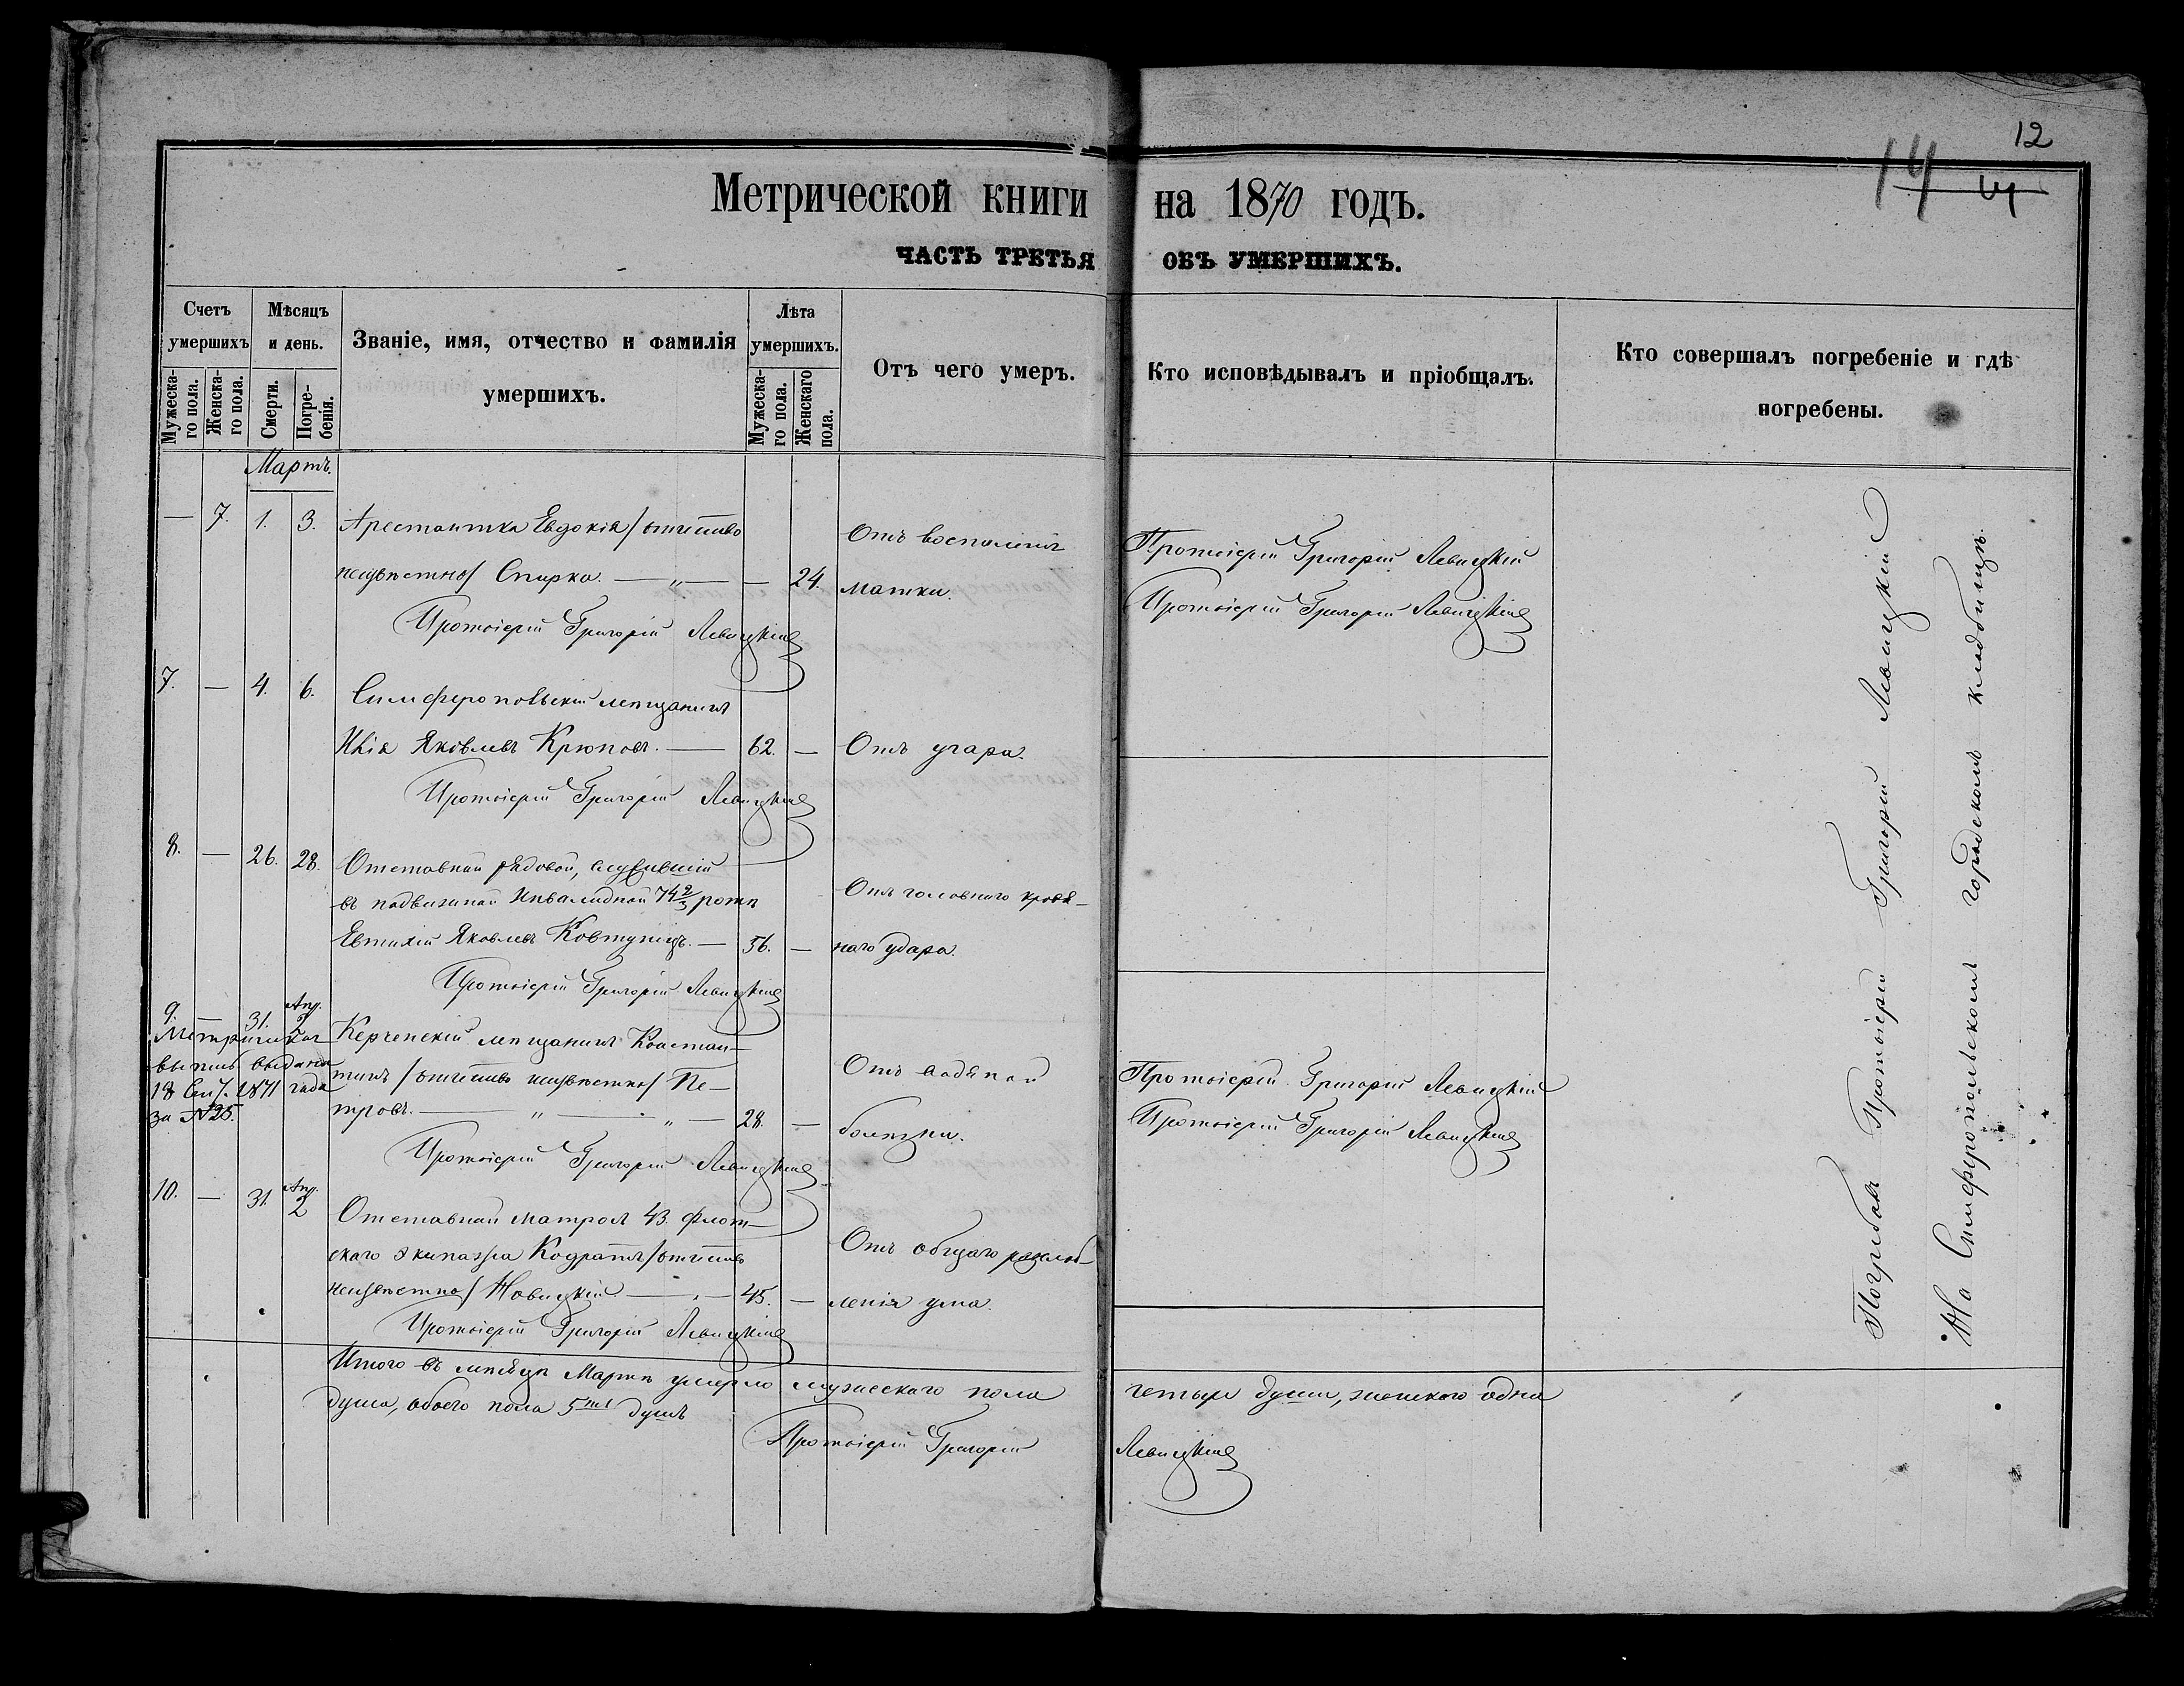 12
14
14
Метрической книги на 1870 годъ.
ЧАСТЬ ТРЕТЬЯ ОБЪ УМЕРШИХЪ.
Счетъ умершихъ
Мужеска-го пола.
Женска-го пола.
Мѣсяцъ и день.
Смерти.
Погре-бенія.
Званіе, имя, отчество и фамилія умершихъ.
Лѣта умершихъ.
Мужеска-го пола.
Женскаго пола.
Отъ чего умеръ.
Кто исповѣдывалъ и пріобщалъ.
Кто совершалъ погребеніе и гдѣ погребены.
Мартъ.
— 7. 1. 3. Арестантка Евдокія /отчество
неизвѣстно/ Спирка. — „ — — 24.
Отъ воспаленія
матки.
Протоіерей Григорій Левицкій
Протоіерей Григорій Левицкій
Протоіерей Григорій Левицкій
7. — 4. 6. Симферопольскій мещанинъ
Илія Яковлевъ Крюковъ. — 62. — Отъ угара.
Протоіерей Григорій Левицкій
8. — 26. 28. Отставный рядовой, служившій
въ подвижной Инвалидной 74 2/3 ротѣ
Евтихій Яковлевъ — 56. —
Отъ головнаго кровя-
наго удара.
Протоіерей Григорій Левицкій
9. — 31. Апр. 2 Керченскій мещанинъ Констан-
тинъ /отчество неизвѣстно/ Пе-
тровъ. — „ — „ — 28. —
Метрическая
выпись выдана
18 Сен. 1871 года
за №25.
Отъ водяной
болѣзни.
Протоіерей Григорій Левицкій
Протоіерей Григорій Левицкій
Протоіерей Григорій Левицкій
10. — 31. Апр. 2 Отставный матросъ 43 флот-
скаго экипажа Кодратъ /отчество
неизвѣстно/ Новицкій — „ — 45. —
Отъ общаго разслаб-
ленія ума.
Протоіерей Григорій Левицкій
Погребалъ Протоіерей Григорій Левицкій
На Симферопольскомъ городскомъ кладбищѣ.
Итого въ мѣсяцѣ Мартѣ умерло мужескаго пола четыре души, женскаго одна
душа, обоего пола 5ть душъ
Протоіерей Григорій Левицкій